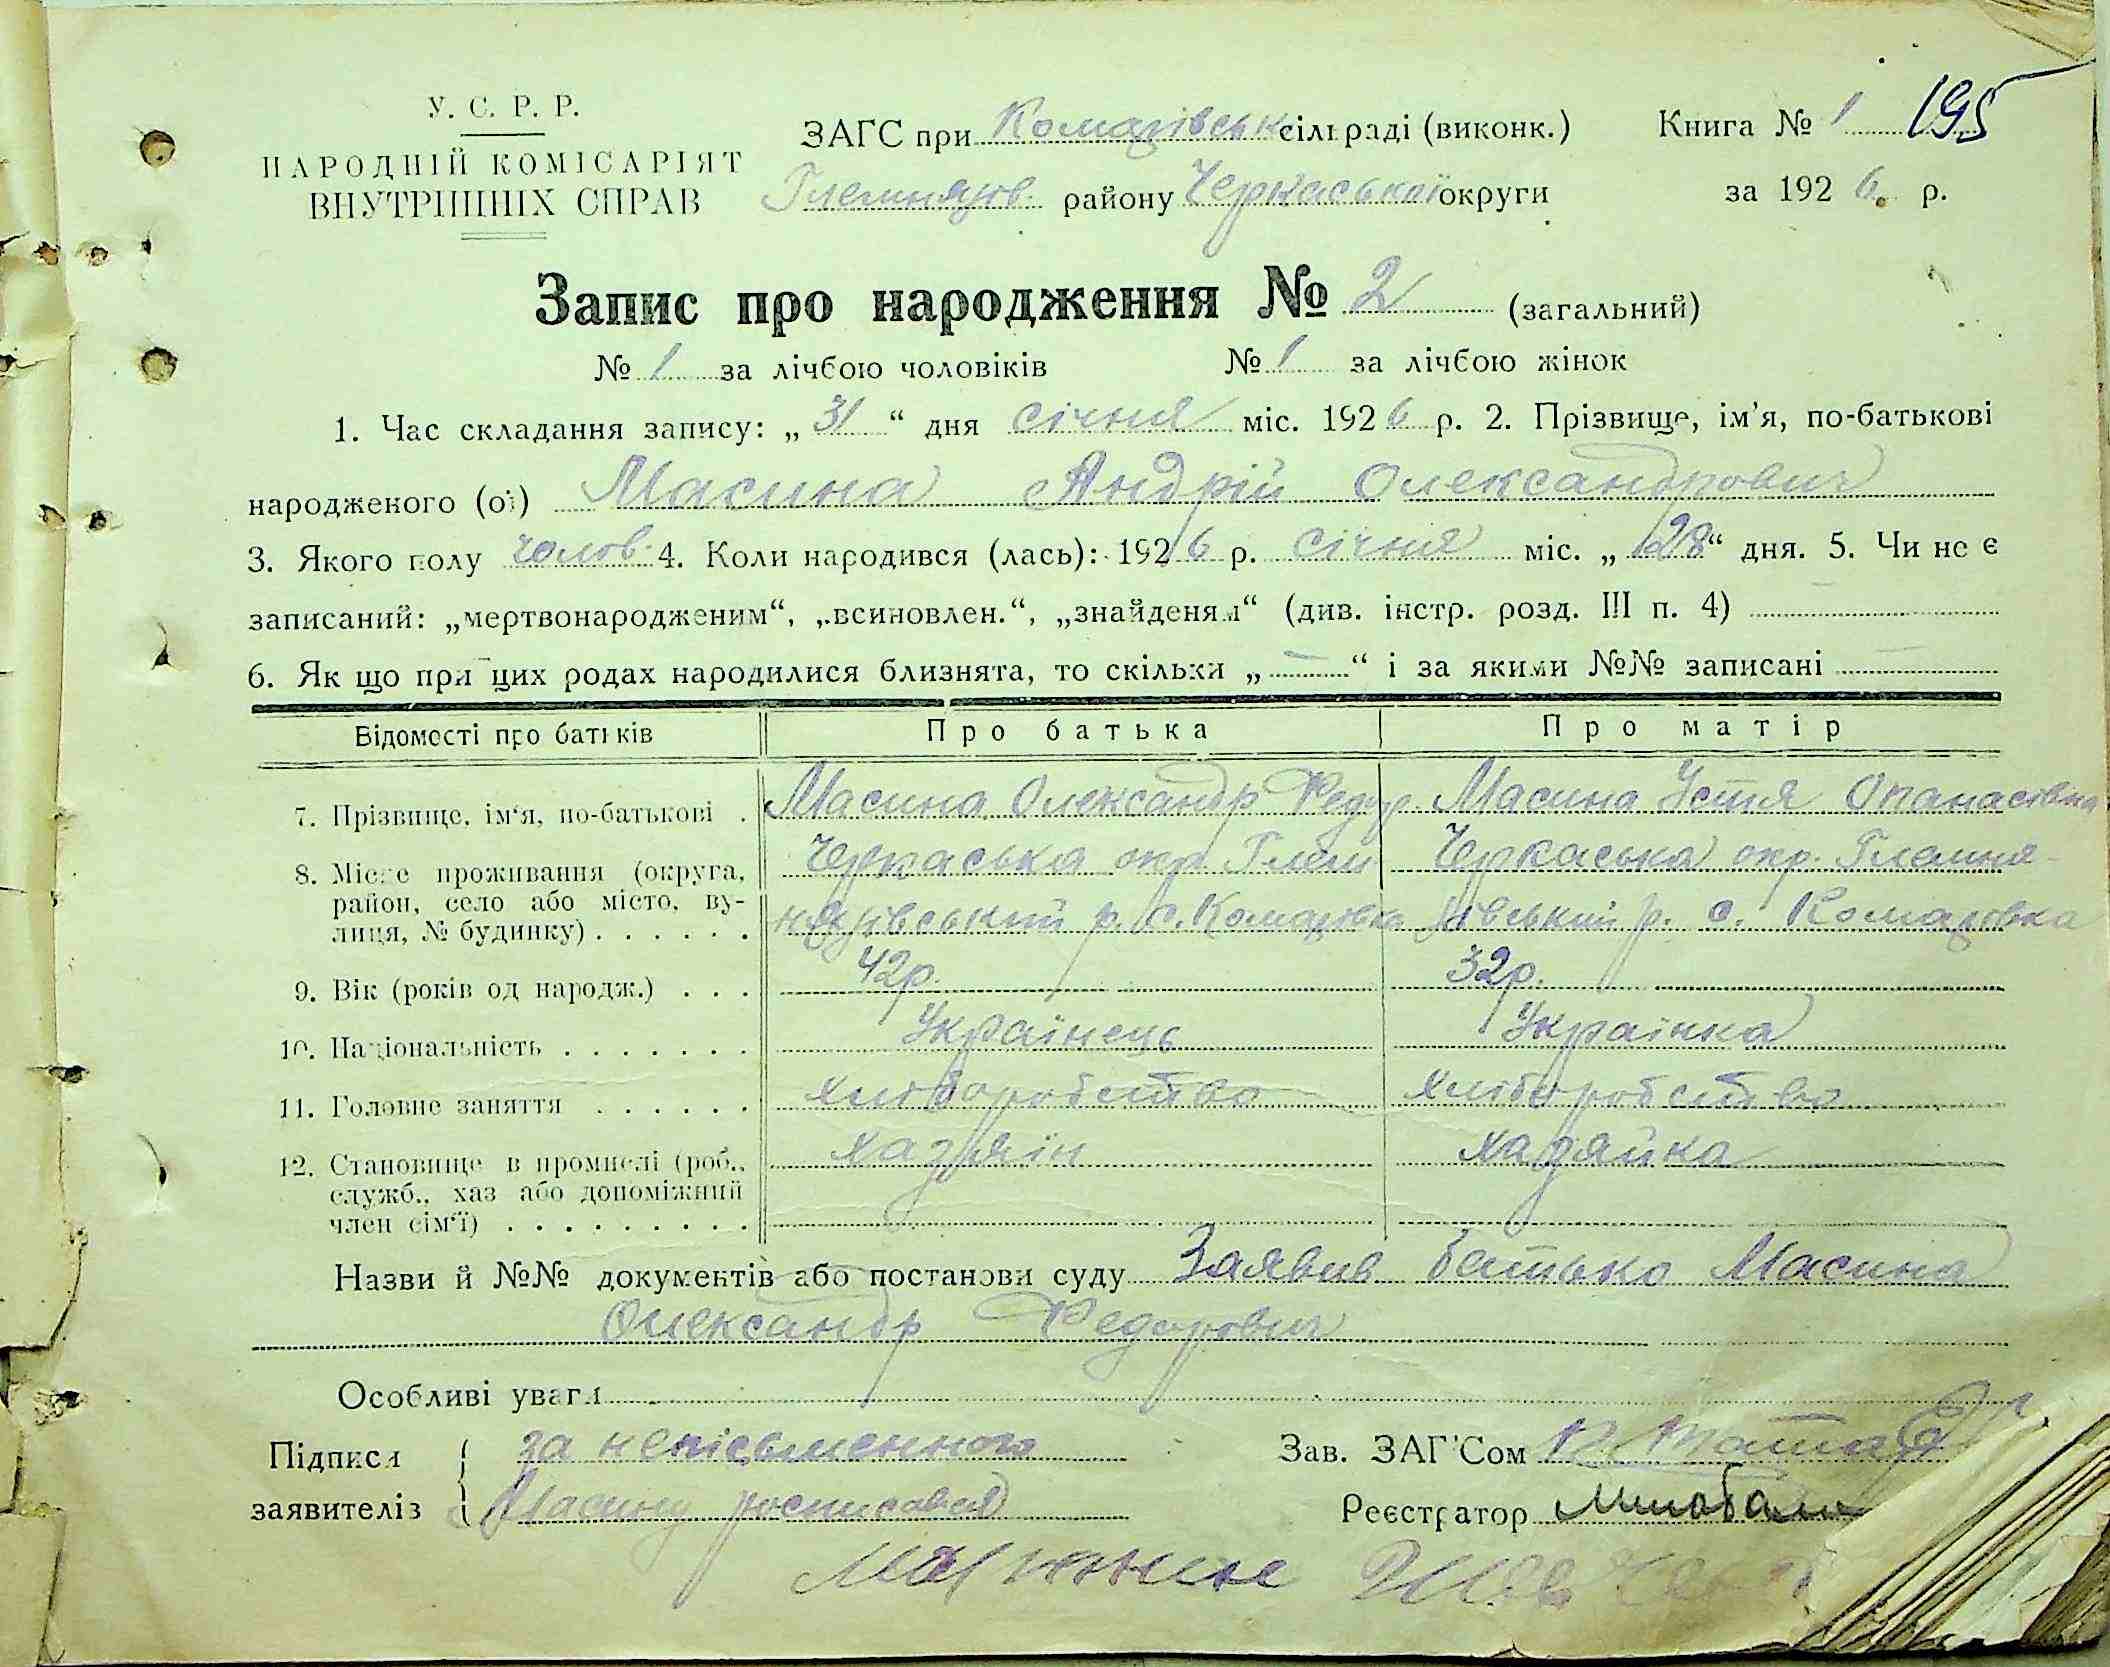 У. С. Р. Р.
НАРОДНІЙ КОМІСАРІЯТ
ВНУТРІШНІХ СПРАВ
ЗАГС при Комарівськ сільраді (виконк.) Книга № 1 195
Глемязів. району Черкаської округи за 1926. р.
Запис про народження № 2 (загальний)
№ 1 за лічбою чоловіків № 1 за лічбою жінок
1. Час складання запису: „31“ дня січня міс. 1926 р. 2. Прізвище, ім’я, по-батькові
народженого (ої) Масина Андрій Олександрович
3. Якого полу чолов. 4. Коли народився (лась): 1926 р. Січня міс. „28“ дня. 5. Чи не є
записаний: „мертвонародженим“, „всиновлен.“, „знайденям“ (див. інстр. розд. III п. 4)
6. Як що при цих родах народилися близнята, то скільки „—“ і за якими №№ записані —
Відомості про батьків Про батька Про матір
7. Прізвище, ім‘я, по-батькові . Масина Олександр Федор. Масина Устя Опанасовна
8. Місце проживання (округа, Черкаська окр. Глем Черкаська окр. Глемня-
район, село або місто, ву-
лиця, № будинку) . . . . . . нязівський р. с. Комарівка зівський р. с. Комаровка
9. Вік (років од народж.) . . . 42р. 32р.
10. Національність . . . . . . . Українець Українка
11. Головне заняття . . . . . . хліборобство хліборобство
12. Становище в промислі (роб., хазяін хазяйка
служб., хаз або допоміжний
член сім‘ї) . . . . . . . . .
Назви й №№ документів або постанови суду Заявив батько Масина
Олександр Федорович
Особливі уваги
Підписи за неписьменного Зав. ЗАГ'Сом
заявителів Масину росписався Реєстратор